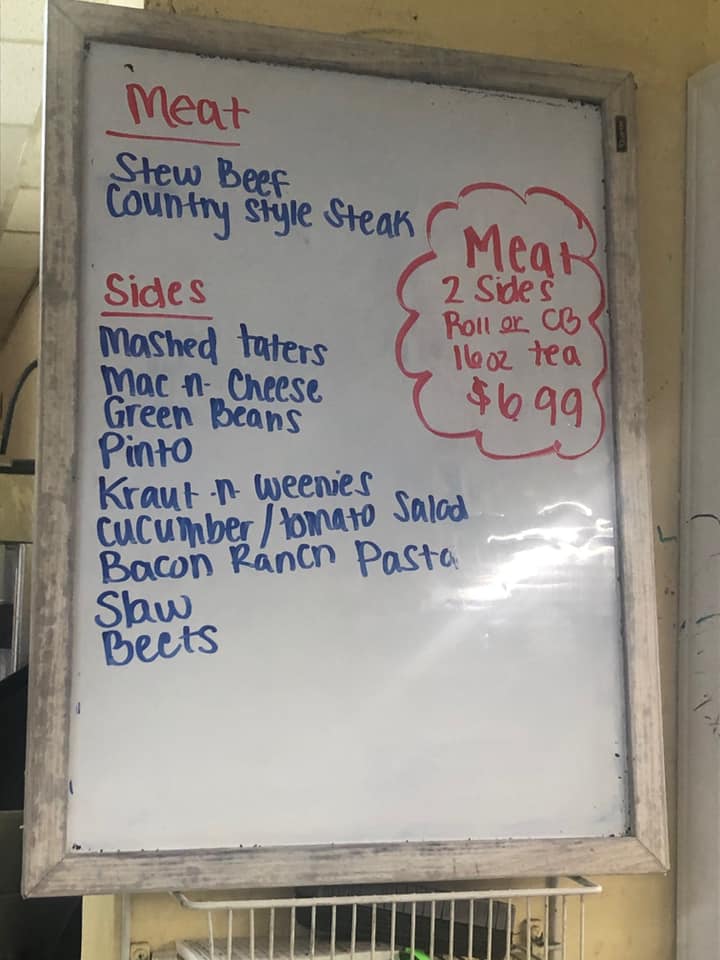 Meat
Stew Beef
Country Style Steak
Sides
Mashed taters
Mac -n- Cheese
Green Beans
Pinto
Kraut -n- weenies
cucumber/tomato Salad
Bacon Ranch Pasta
Slaw
Beets
Meat
2 Sides
Roll or CB
16oz tea
$6.99